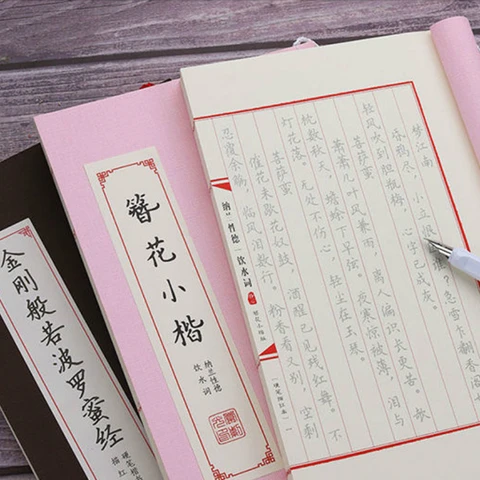 金刚般若波罗蜜经
硬笔楷书
描红
簪花小楷
纳兰性德
饮水词
梦江南
昏鸦尽，小立恨谁？急雪乍翻香阁
轻风吹到胆瓶梅，心字已成灰。
菩萨蛮
萧萧几叶风兼雨，离人偏识长更苦。欹
枕数秋天，蟾蜍下早弦。夜寒惊被薄，泪与
灯花落。无处不伤心，轻尘在玉琴。
菩萨蛮
催花未歇花奴鼓，酒醒已见残红舞。不
忍覆余觞，临风泪数行。粉香看又别，空剩
纳兰性德
饮水词